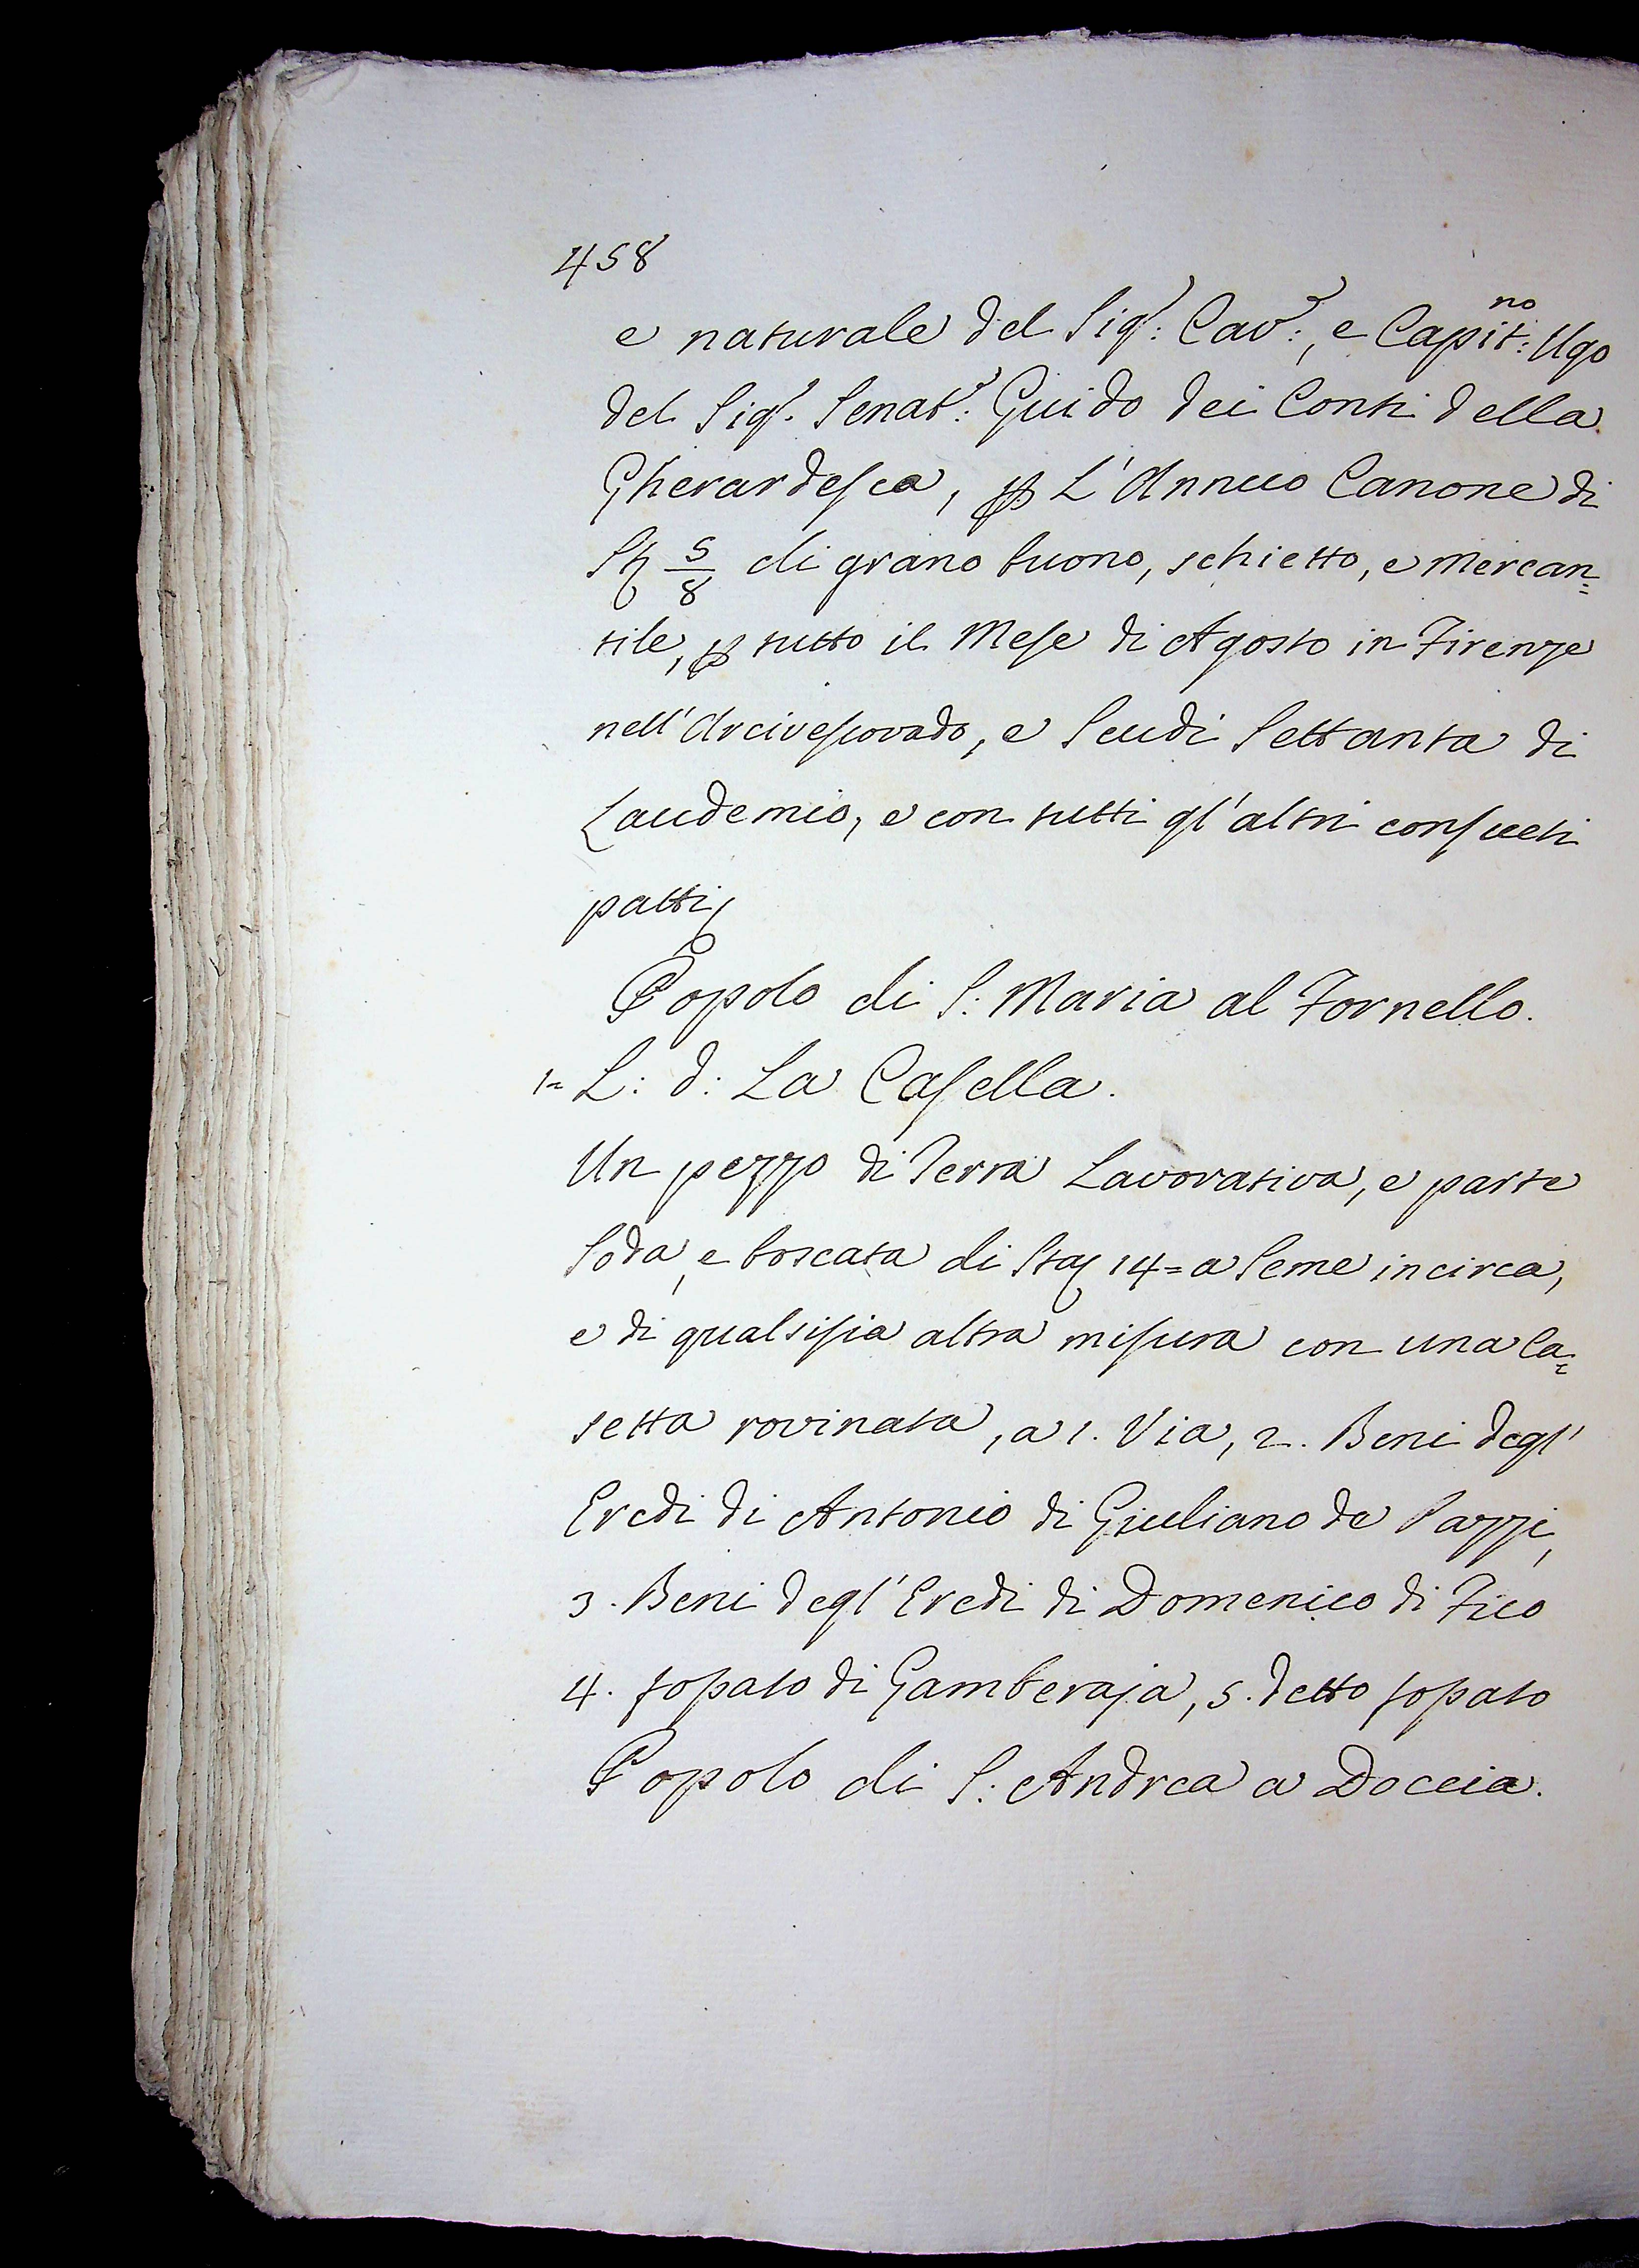 458
e naturale del Sig.r: Cav.r:, e Capit:no Ugo
del Sig.r Senat.r: Guido dei Conti della
Gherardesca, p L'Annuo Canone di
St 5/8 di grano buono, schietto, e Mercan=
tile, p tutto il Mese di Agosto in Firenze
nell'Arcivescovado, e Scudi Settanta di
Laudemio, e con tutti gl'altri consueti
patti
Popolo di S: Maria al Fornello.
1= L: d: La Casella.
Un pezzo di Terra Lavorativa, e parte
Soda, e boscata di Sta 14= a Seme incirca,
e di qualsisia altra misura con una Ca=
setta rovinata, a 1. Via, 2. Beni degl'
Eredi di Antonio di Giuliano de Pazzi,
3. Beni degl'Eredi di Domenico di Fico
4. fossato di Gamberaja, 5. detto fossato
Popolo di S: Andrea a Doccia.